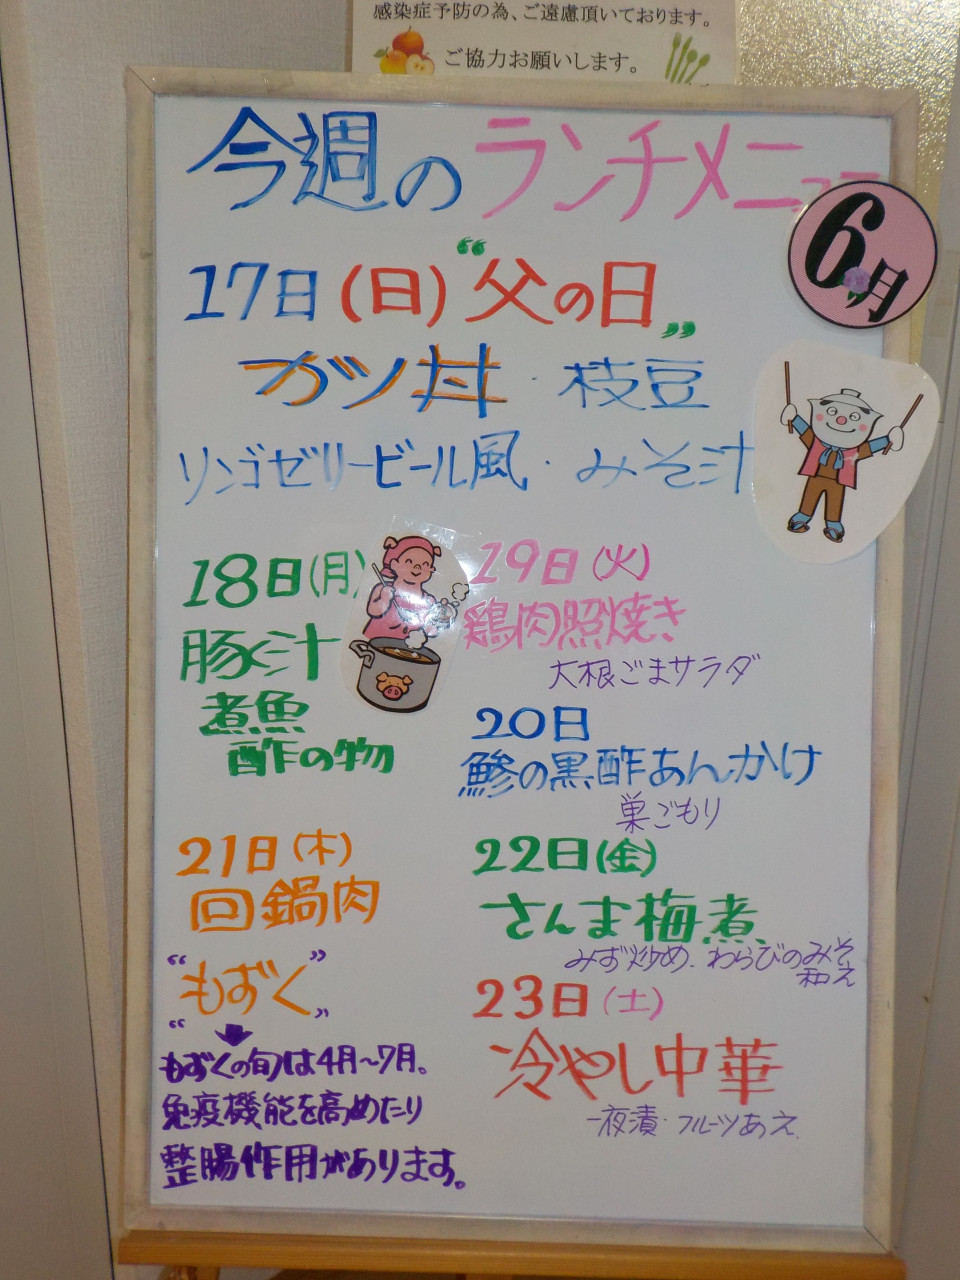 感染症予防の為、ご遠慮頂いております。
ご協力お願いします。
今週のランチメニュー
6月
17日(日)“父の日”
ガツ丼・枝豆
リンゴゼリービール風・みそ汁
18日(月)
豚汁
煮魚
酢の物
19日(火)
鶏肉照焼き
大根ごまサラダ
20日
鯵の黒酢あんかけ
巣ごもり
21日(木)
回鍋肉
“もずく”
もずくの旬は4月〜7月。
免疫機能を高めたり
整腸作用があります。
22日(金)
さんま梅煮
みず炒め・わらびのみそ
和え
23日(土)
冷やし中華
一夜漬・フルーツあえ